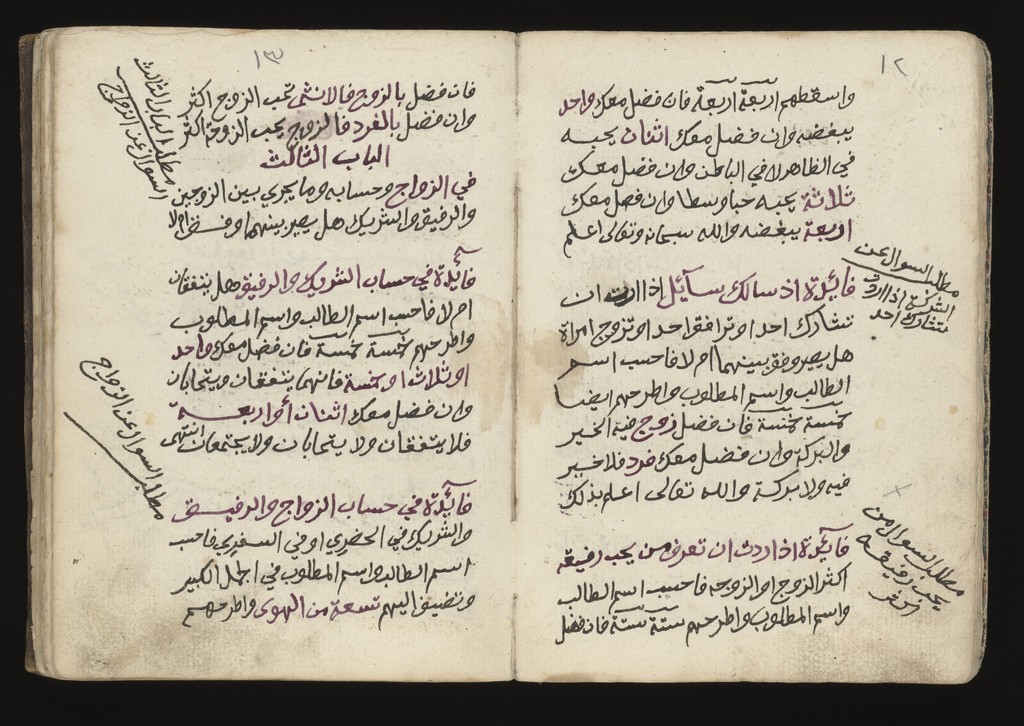 ١٢
واسقطهم اربعة اربعة فان فضل معك واحد
يبغضه وان فضل معك اثنان يحبه
في الظاهر لا في الباطن وان فضل معك
ثلاثة يحبه حبا وسطا وان فضل معك
اربعة يبغضه والله سبحانه وتعالى اعلم
مطلب السوال عن
الشركة اذا اردت
تشارك احد
فائدة اذ سالك سآئل اذا اردت ان
تشارك احدا وترافق احد او تزوج امراة
هل يصير وفق بينهما ام لا فاحسب اسم
الطالب واسم المطلوب واطرحهم ايضا
خمسة خمسة فان فضل زوج فيه الخير
والبركة وان فضل معك فرد فلا خير
فيه ولا بركة والله تعالى اعلم بذلك
مطلب السوال من
يحب رفيقه
فائدة اذا اردت ان تعرف من يحب رفيقه
اكثر الزوج او الزوجه فاحسب اسم الطالب
واسم المطلوب واطرحهم ستة ستة فان فضل
١٣
فان فضل بالزوج فالانثى تحب الزوج اكثر
وان فضل بالفرد فالزوج يحب الزوجة اكثر
مطلب الباب الثالث
السوال عن الزواج
الباب الثالث
في الزواج وحسابه وما يجري بين الزوجين
والرفيق والشريك هل يصير بينهما وفق ام لا
فائدة في حساب الشريك والرفيق هل يتفقان
ام لا فاحسب اسم الطالب واسم المطلوب
واطرحهم خمسة خمسة فان فضل معك واحد
او ثلاث او خمسة فانهما يتفقان ويتحابان
وان فضل معك اثنان أو اربعة
فلا يتفقان ولا يتحابان ولا يجتمعان انتهى
مطلب السوال عن الزواج
فائدة في حساب الزواج والرفيق
والشريك في الحضري او في السفري فاحسب
اسم الطالب واسم المطلوب في الجمل الكبير
وتضيف اليهم تسعة من الهوى واطرحهم